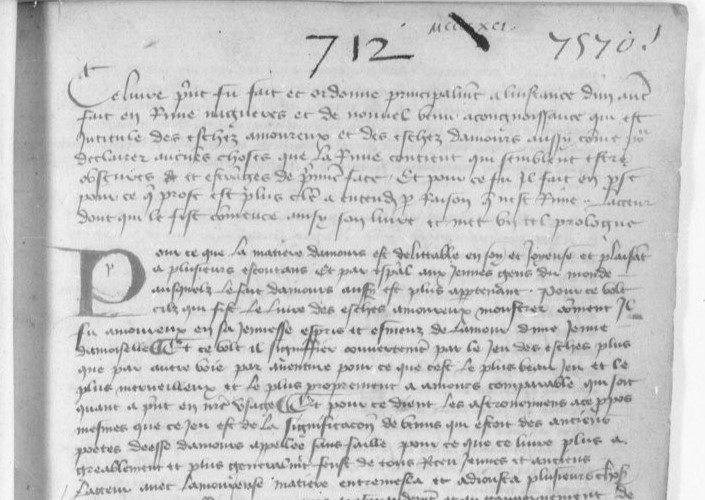 712 MCCCXCI. 7570.
Ce livre p̃nt fu fait et ordonne principalm̃t a linstance dun aut̃
fait en Rime nagueres et de nouvel venu a congnoissance qui est
Intitule des eschez amoureux et des eschez damours aussy cõme po᷑
declairer aucũes choses que la Rime contient qui semblent estre
obscures et estranges de p̃miere face. Et pour ce fu il fait en p̃se
pour ce q̃ prose est plus clere a entend̃ p Raison q̃ nest Rime. Lacteur
dont qui le fist cõmence ainsy son livre et met ung tel prologue
Pour ce que la matiere damours est delittable en soy et Joyeuse et plaisãt
a plusieurs escoutans Et par esp̃al aux Jennes gens du monde
ausquelz le fait damours aussy est plus apptenant. Pour ce volt
cilz qui fist le livre des eschez amoureux monstrer cõment Il
fu amoureux en sa Jennesse espris et esmeuz de lamour dune Jenne
damoiselle Et ce volt il signiffier couvertem̃t par le Jeu des eschez plus
que par autre voie par aventure pour ce que cest le plus beau Jeu et le
plus merveilleux et le plus proprement a amours comparable qui soit
quant a p̃nt en nr̃e usage Et pour ce dient les astronomiens a ce p̃pos
mesmes que ce Jeu est de la significacõn de venus qui estoit des anciens
poetes deesse damours appellee sans faille. pour ce que ce livre plus a
greablement et plus generaum̃t feust de tous Receu Jennes et anciens
Lacteur avec lamoureuse matiere entremesla et adiousta plusieurs choses